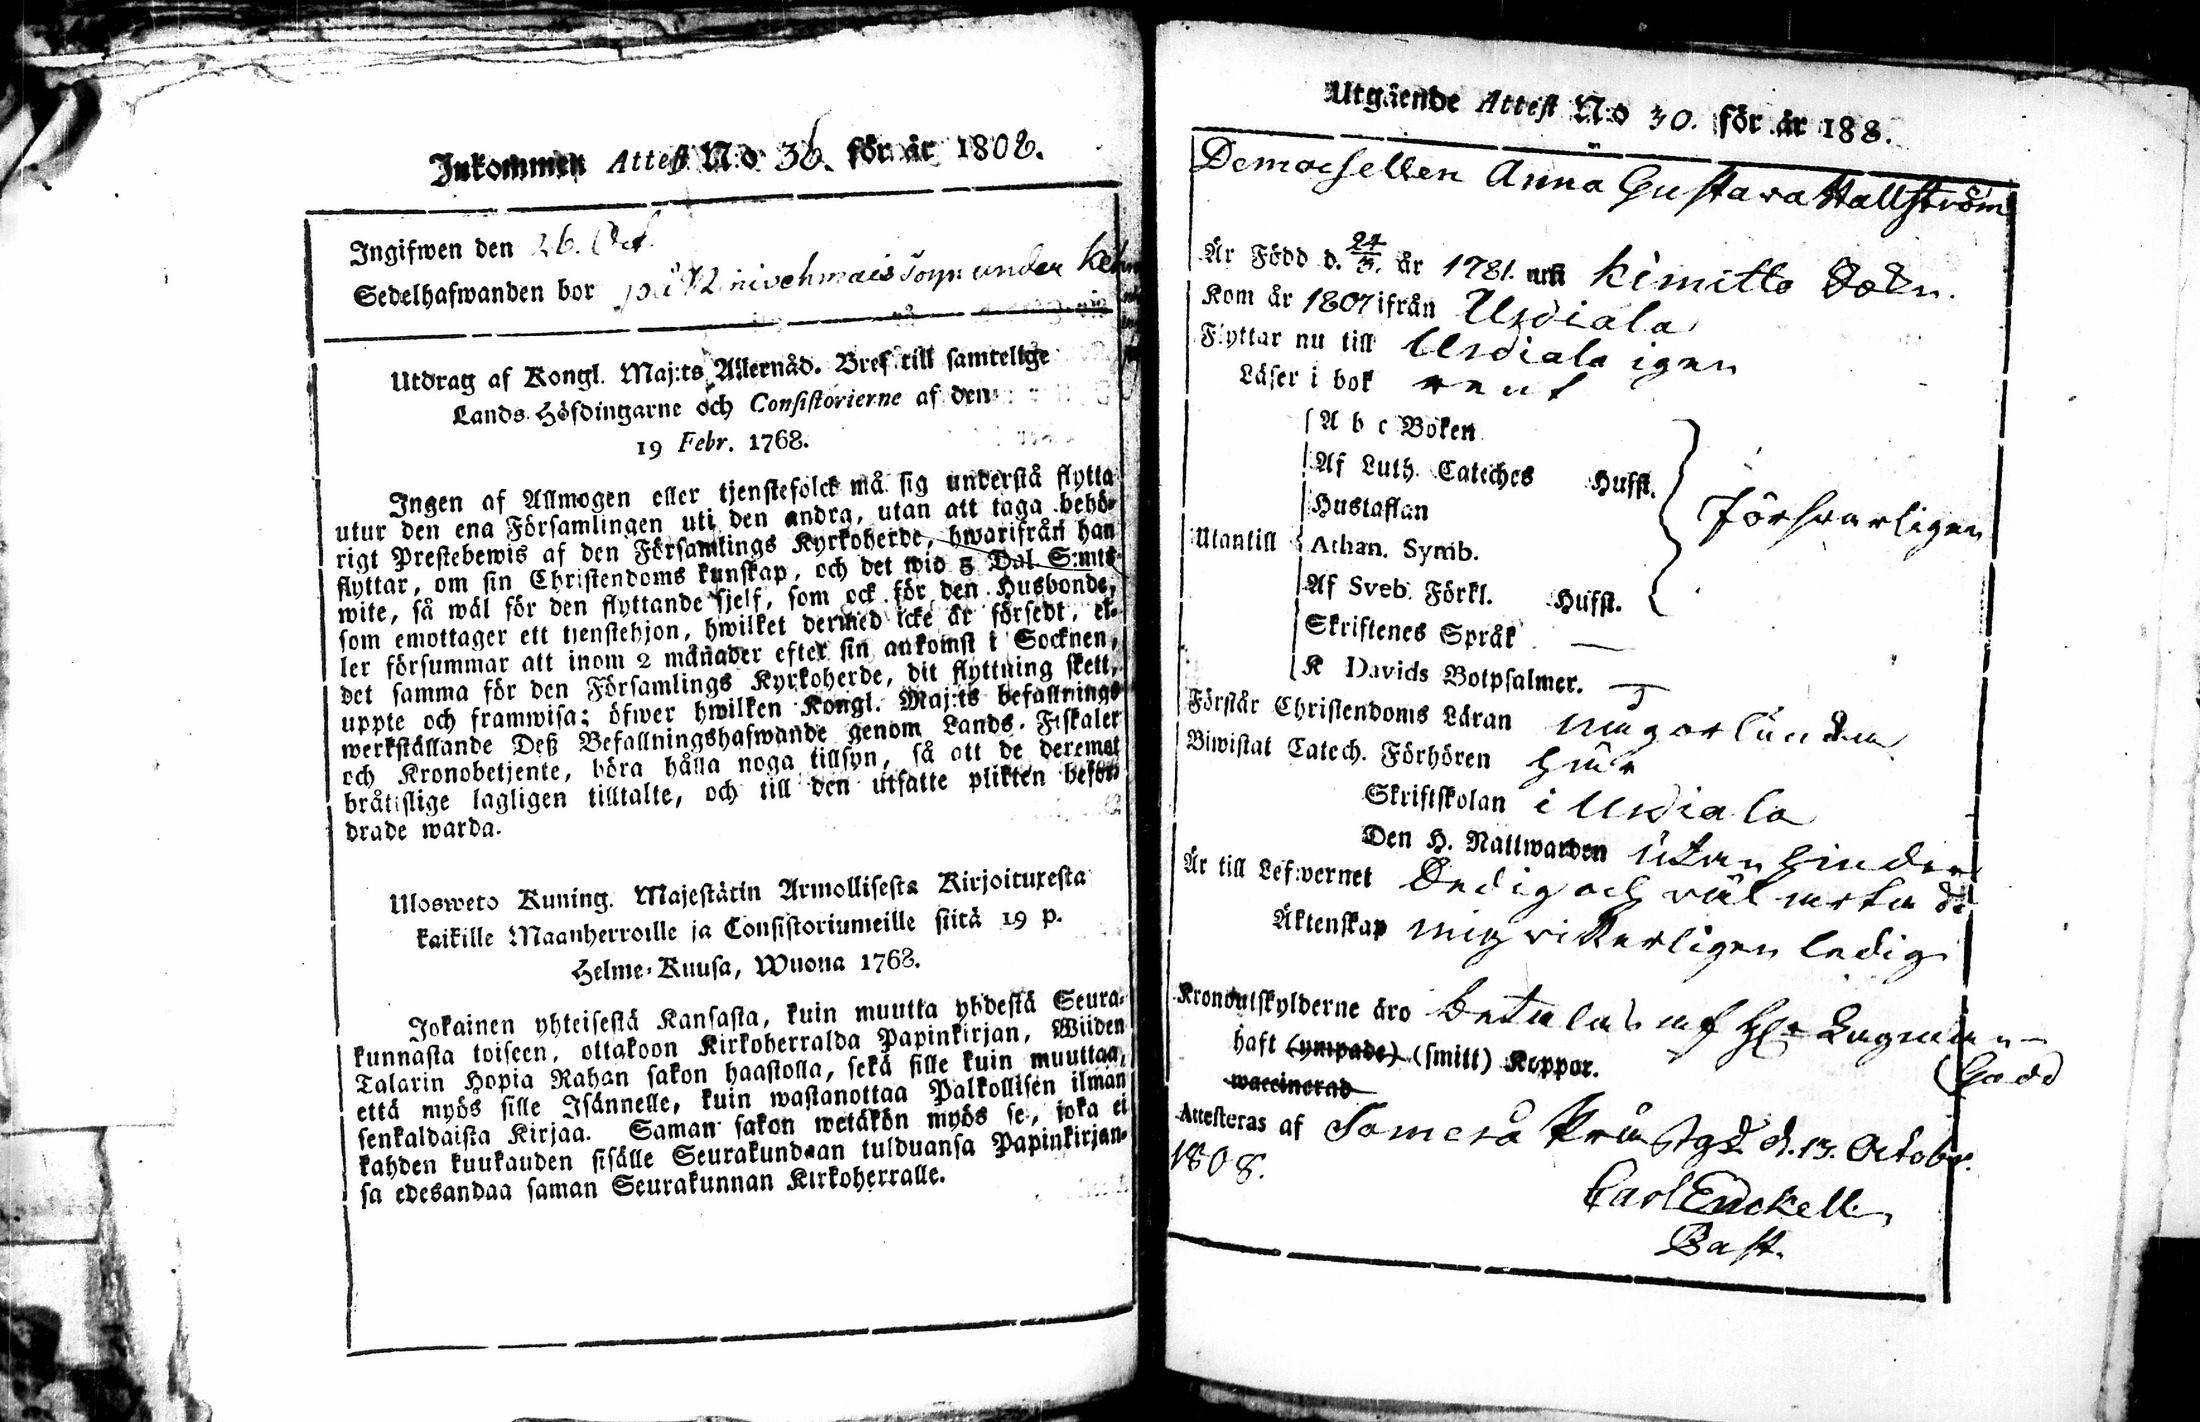 Inkommen Attest N:o 36. för år 1808.
Ingifwen den 26. Oct.
Sedelhafwanden bor på under
Utdrag af Kongl. Maj:ts Allernåd. Bref till samtelige
Lands-Höfdingarne och Consistorierne af den
19 Febr. 1768.
Ingen af Allmogen eller tjenstefolck må sig understå flytta
utur den ena Församlingen uti den andra, utan att taga behö-
rigt Prestebewis af den Församlings Kyrkoherde, hwarifrån han
flyttar, om sin Christendoms kunskap, och det wid 5 Dal. S:mts
wite, så wäl för den flyttande sjelf, som ock för den Husbonde,
som emottager ett tjenstehjon, hwilket dermed icke är försedt, el-
ler försummar att inom 2 månader efter sin ankomst i Socknen,
det samma för den Församlings Kyrkoherde, dit flyttning skett,
uppte och framwisa; öfwer hwilken Kongl. Maj:ts befallnings
werkställande Deß Befallningshafwande genom Lands-Fiskaler
och Kronobetjente, böra hålla noga tillsyn, så att de deremot
bråtislige lagligen tilltalte, och till den utsatte plikten befor-
drade warda.
Ulosweto Kuning. Majestätin Armollisesta Kirjoituxesta
kaikille Maanherroille ja Consistoriumeille siitä 19 p.
Helme-Kuusa, Wuona 1768.
Jokainen yhteisestä Kansasta, kuin muutta yhdestä Seura-
kunnasta toiseen, ottakoon Kirkoherralda Papinkirjan, Wiiden
Talarin Hopia Rahan sakon haastolla, sekä sille kuin muuttaa,
että myös sille Isännelle, kuin wastanottaa Palkollisen ilman
senkaldaista Kirjaa. Saman sakon wetäkön myös se, joka ei
kahden kuukauden sisälle Seurakundaan tulduansa Papinkirjan-
sa edesandaa saman Seurakunnan Kirkoherralle.
Utgående Attest N:o 30. för år 188.
Demoisellen Anna Gustava Hallström
Är Född d. 24/3. år 1781. uti Kimitto Sokn.
Kom år 1807 ifrån Urdiala
Flyttar nu till Urdiala igen
Läser i bok rent
A b c Boken
Af Luth. Cateches Husfl.
Hustaflan
Utantill Athan. Symb. Försvarligen
Af Sveb. Förkl. Husfl.
Skriftenes Språk —
K Davids Botpsalmer. —
Förstår Christendoms Läran någorlunda
Biwistat Catech. Förhören här
Skriftskolan i Urdiala
Den H. Nattwarden utan hinder
Är till Lefwernet Sedig och väl artad
Äktenskap mig vitterligen ledig
Kronoutskylderne äro betalas af Hr Lagman
Gadd
haft (ympade) (smitt) Koppor.
waccinerad
Attesteras af Somero Prästgd. d. 13. Octobr.
1808.
Carl Enckell
Past.